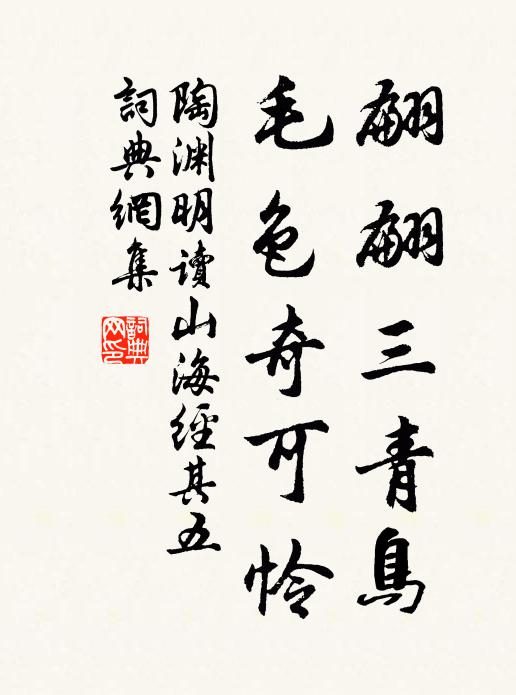 翩翩三青鳥
毛色奇可怜
陶渊明讀山海經其五
詞典網集
詞典网印